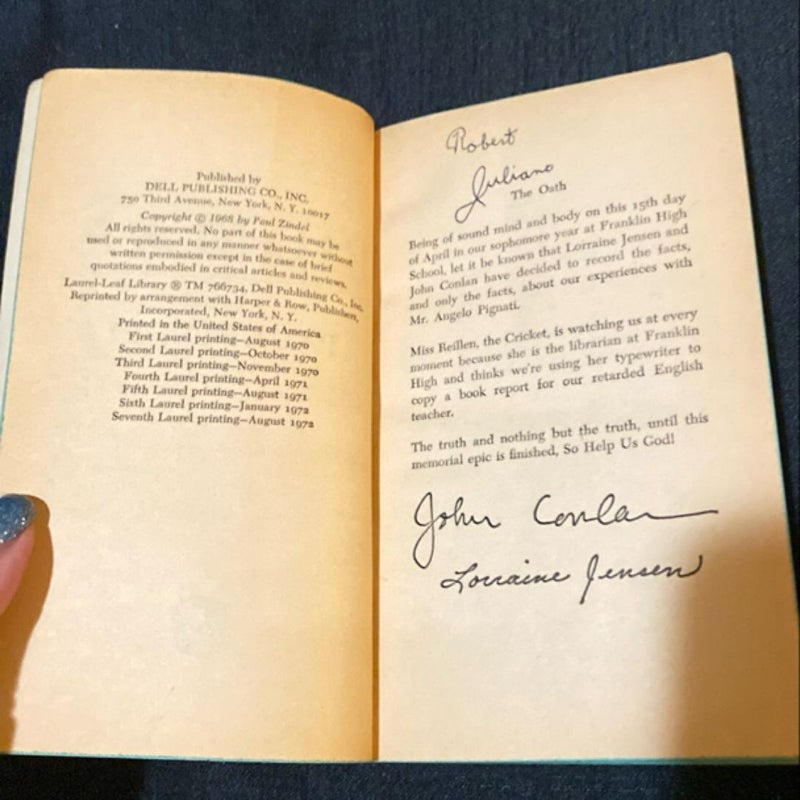 Published by
DELL PUBLISHING CO., INC.
750 Third Avenue, New York, N. Y. 10017
Copyright © 1968 by Paul Zindel
All rights reserved. No part of this book may be
used or reproduced in any manner whatsoever without
written permission except in the case of brief
quotations embodied in critical articles and reviews.
Laurel-Leaf Library ® TM 766734, Dell Publishing Co., Inc.
Reprinted by arrangement with Harper & Row, Publishers,
Incorporated, New York, N. Y.
Printed in the United States of America
First Laurel printing—August 1970
Second Laurel printing—October 1970
Third Laurel printing—November 1970
Fourth Laurel printing—April 1971
Fifth Laurel printing—August 1971
Sixth Laurel printing—January 1972
Seventh Laurel printing—August 1972
Robert
Juliano
The Oath
Being of sound mind and body on this 15th day
of April in our sophomore year at Franklin High
School, let it be known that Lorraine Jensen and
John Conlan have decided to record the facts,
and only the facts, about our experiences with
Mr. Angelo Pignati.
Miss Reillen, the Cricket, is watching us at every
moment because she is the librarian at Franklin
High and thinks we're using her typewriter to
copy a book report for our retarded English
teacher.
The truth and nothing but the truth, until this
memorial epic is finished, So Help Us God!
John Conlan
Lorraine Jensen